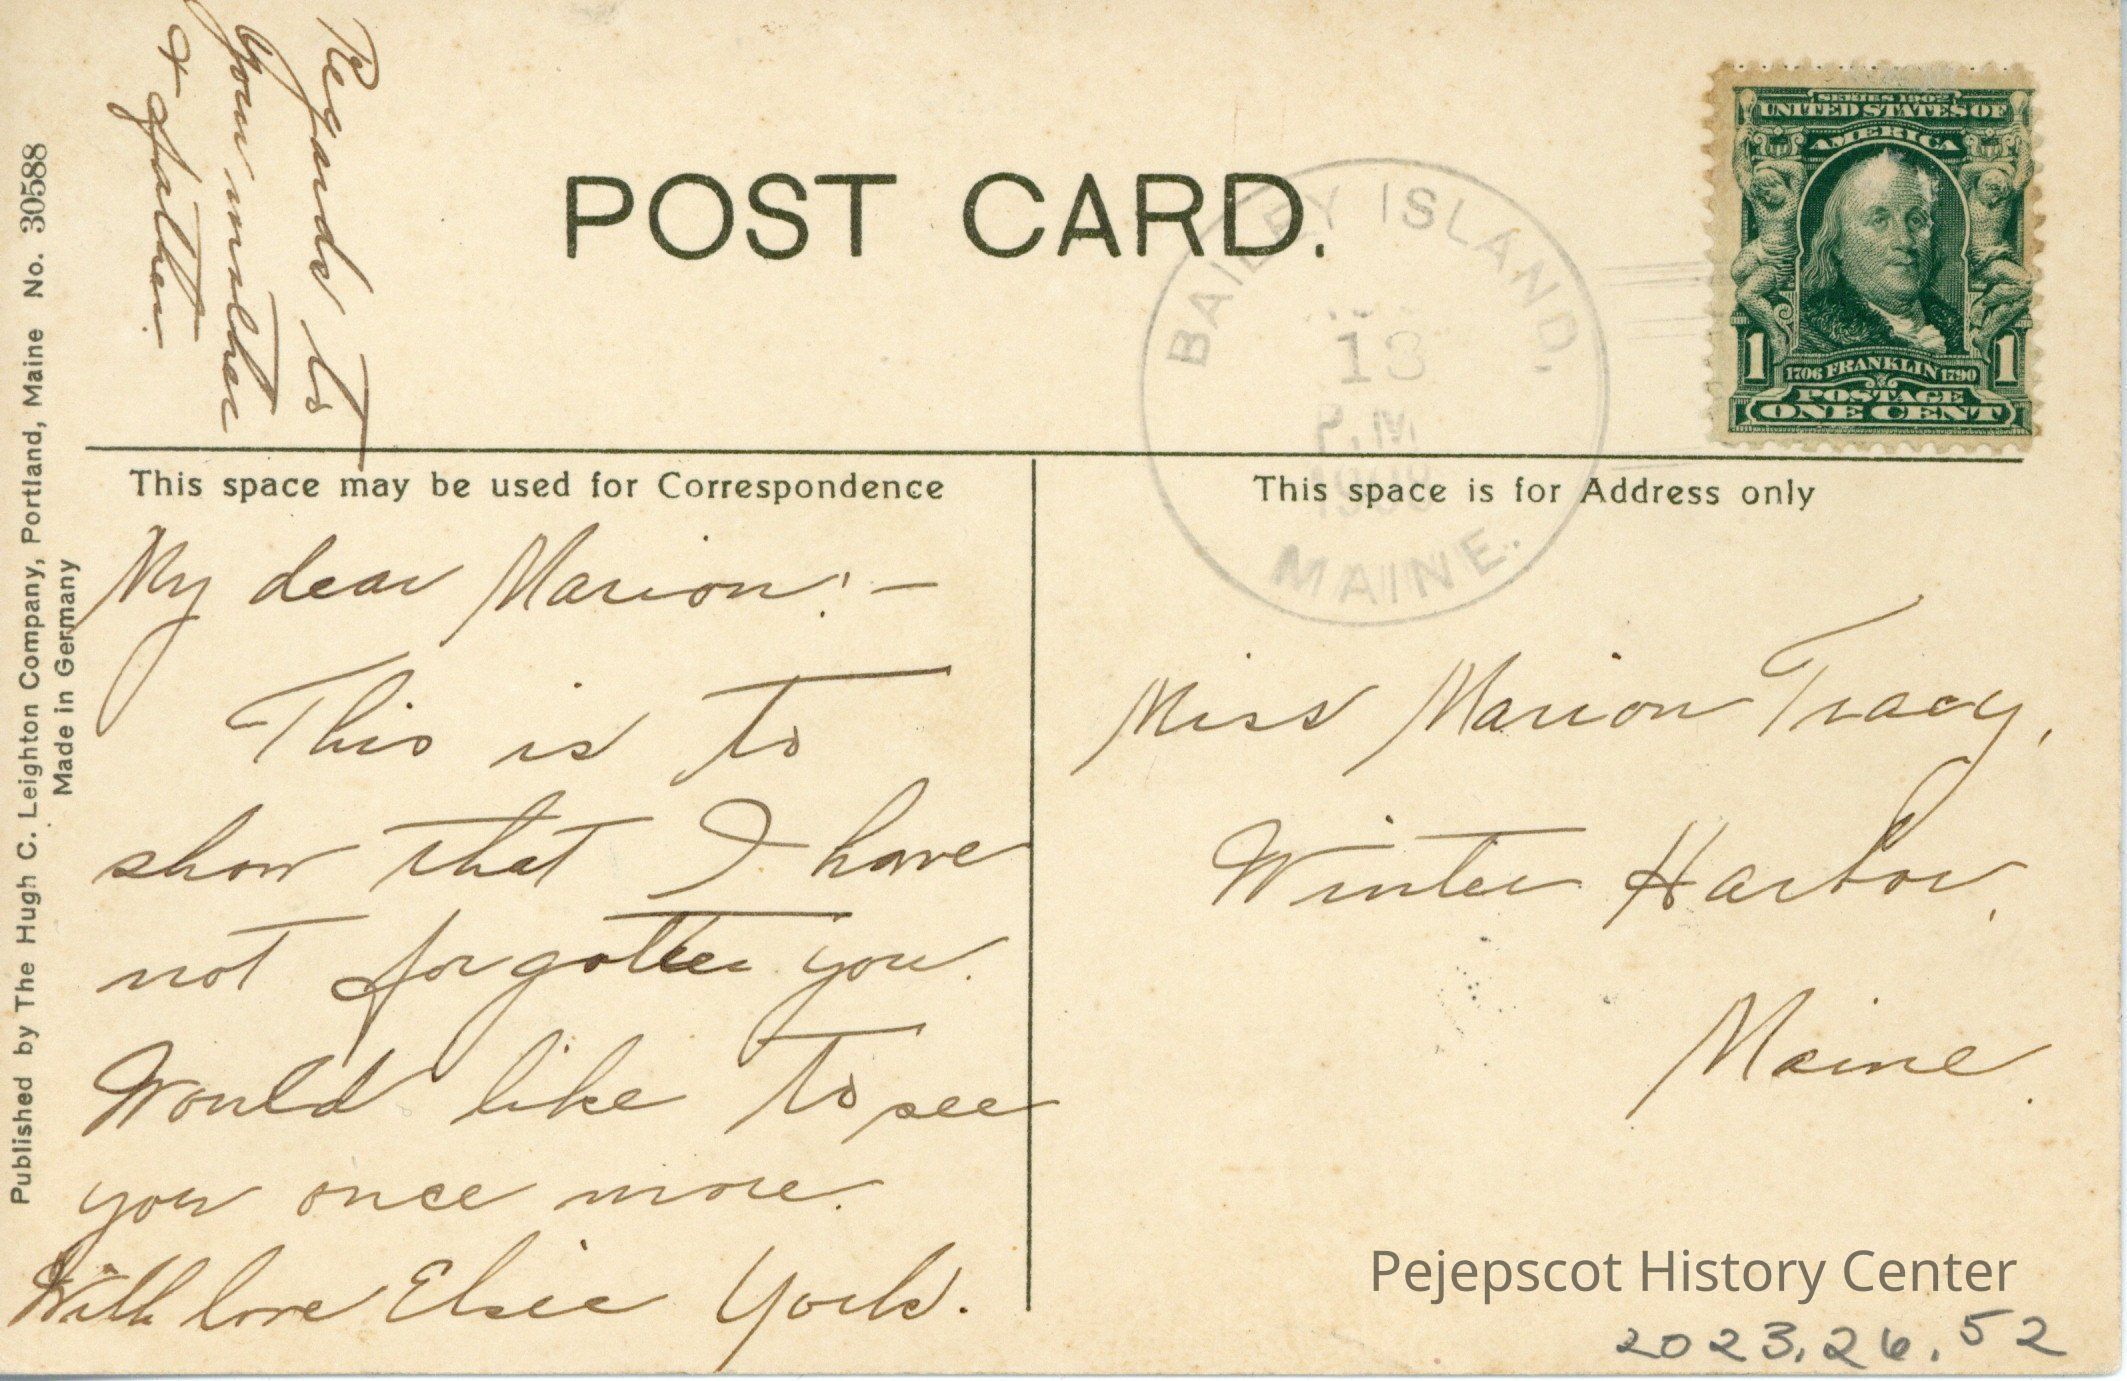 Regards to
your mother
& father.
POST CARD.
BAILEY ISLAND,
P.M.
MAINE.
SERIES 1902
UNITED STATES OF
AMERICA
1706 FRANKLIN 1790
1 1
POSTAGE
ONE CENT
Published by The Hugh C. Leighton Company, Portland, Maine No. 30588
Made in Germany
This space may be used for Correspondence
My dear Marion:-
This is to
show that I have
not forgotten you.
Would like to see
you once more.
With love Elsie York.
This space is for Address only
Miss Marion Tracy,
Winter Harbor,
Maine.
Pejepscot History Center
2023.26.52